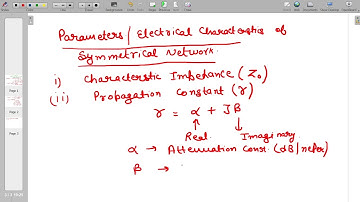 Parameters / Electrical Characteristics of
Symmetrical Network.
i) Characteristic Impedance (Z₀)
(ii) Propagation Constant (γ)
γ = α + Jβ
Real. Imaginary.
α → Attenuation Const. (dB/neper)
β →